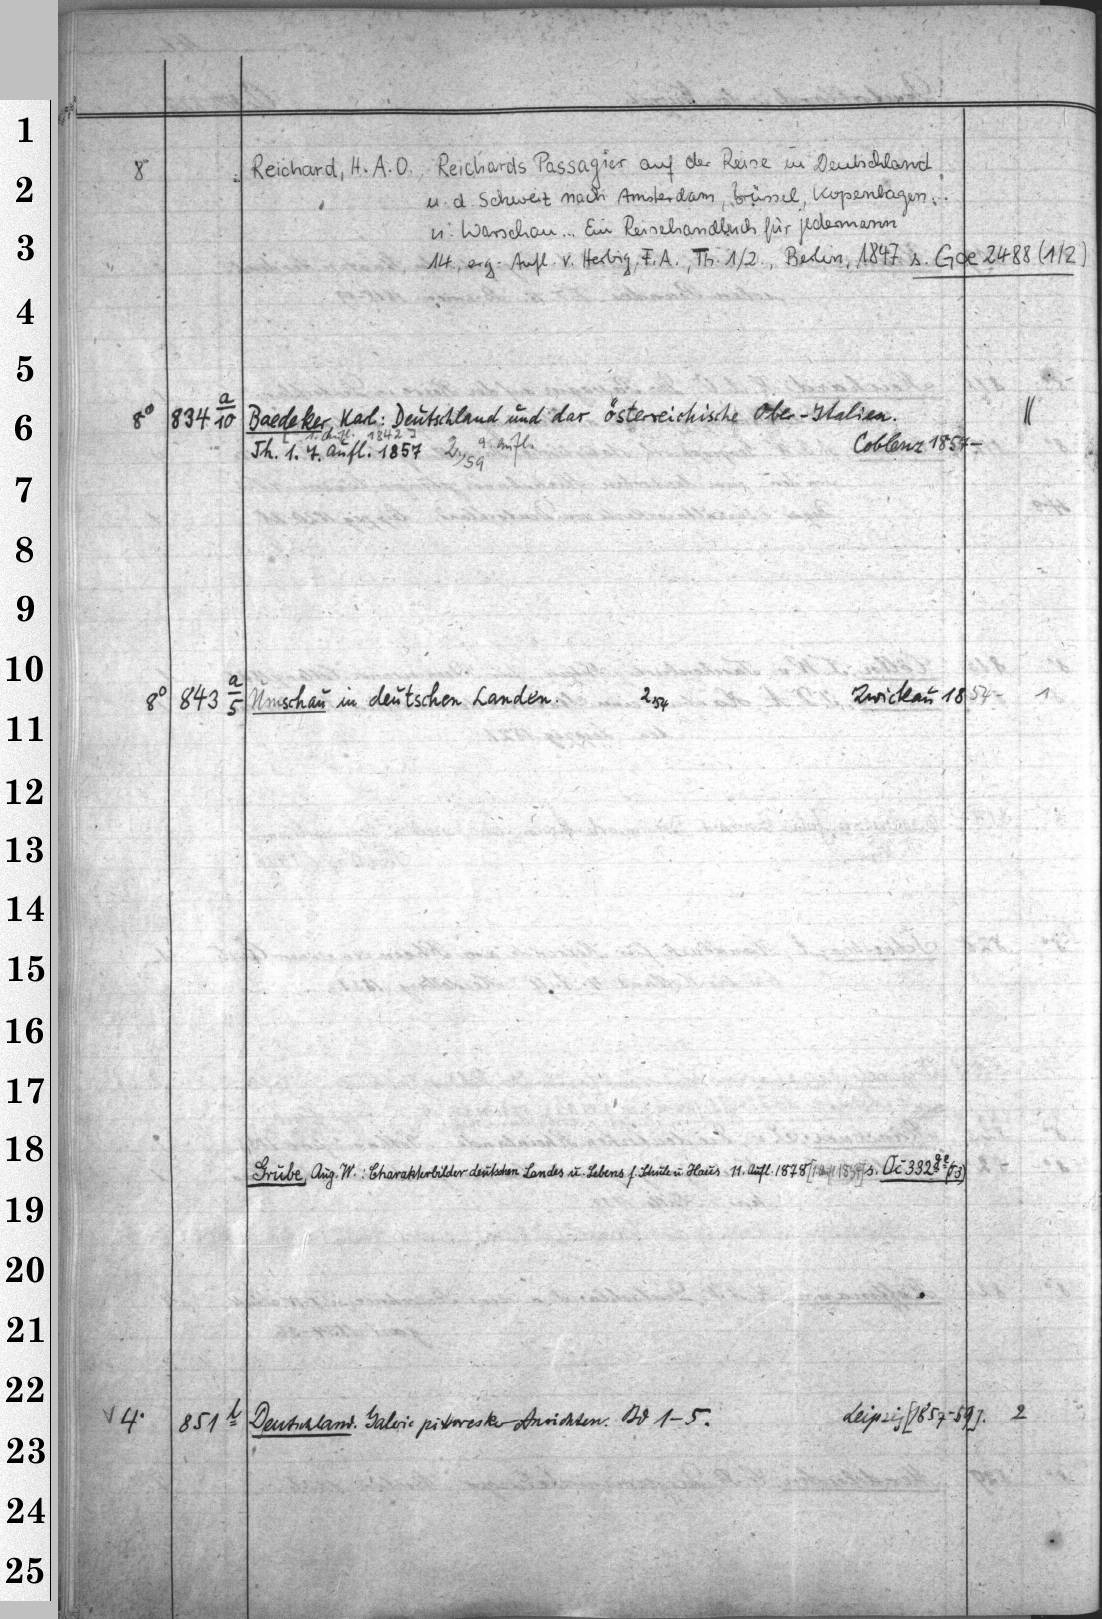 1
2
3
4
5
6
7
8
9
10
11
12
13
14
15
16
17
18
19
20
21
22
23
24
25
8 Reichard, H. A. O., Reichards Passagier auf der Reise in Deutschland
u. d. Schweiz nach Amsterdam, Brüssel, Kopenhagen
u. Warschau... Ein Reisehandbuch für jedermann
14. erg. Aufl. v. Herbig, F. A., Th. 1/2., Berlin, 1847 s. Goe 2488 (1/2)
8° 834 a/10 Baedeker, Karl: Deutschland und das österreichische Ober-Italien. ||
[1. Aufl. 1842]
Th. 1. 7. Aufl. 1857 2, 59 9. Aufl. Coblenz 1857-
8° 843 a/5 Umschau in deutschen Landen. 2 54 Zwickau 1854- 1
Grube, Aug. W.: Charakterbilder deutschen Landes u. Lebens f. Schule u. Haus. 11. Aufl. 1878 s. Oc 332
4° 851 Deutschland. Galerie pittoresker Ansichten. Bd 1-5. Leipzig [1857-59]. 2